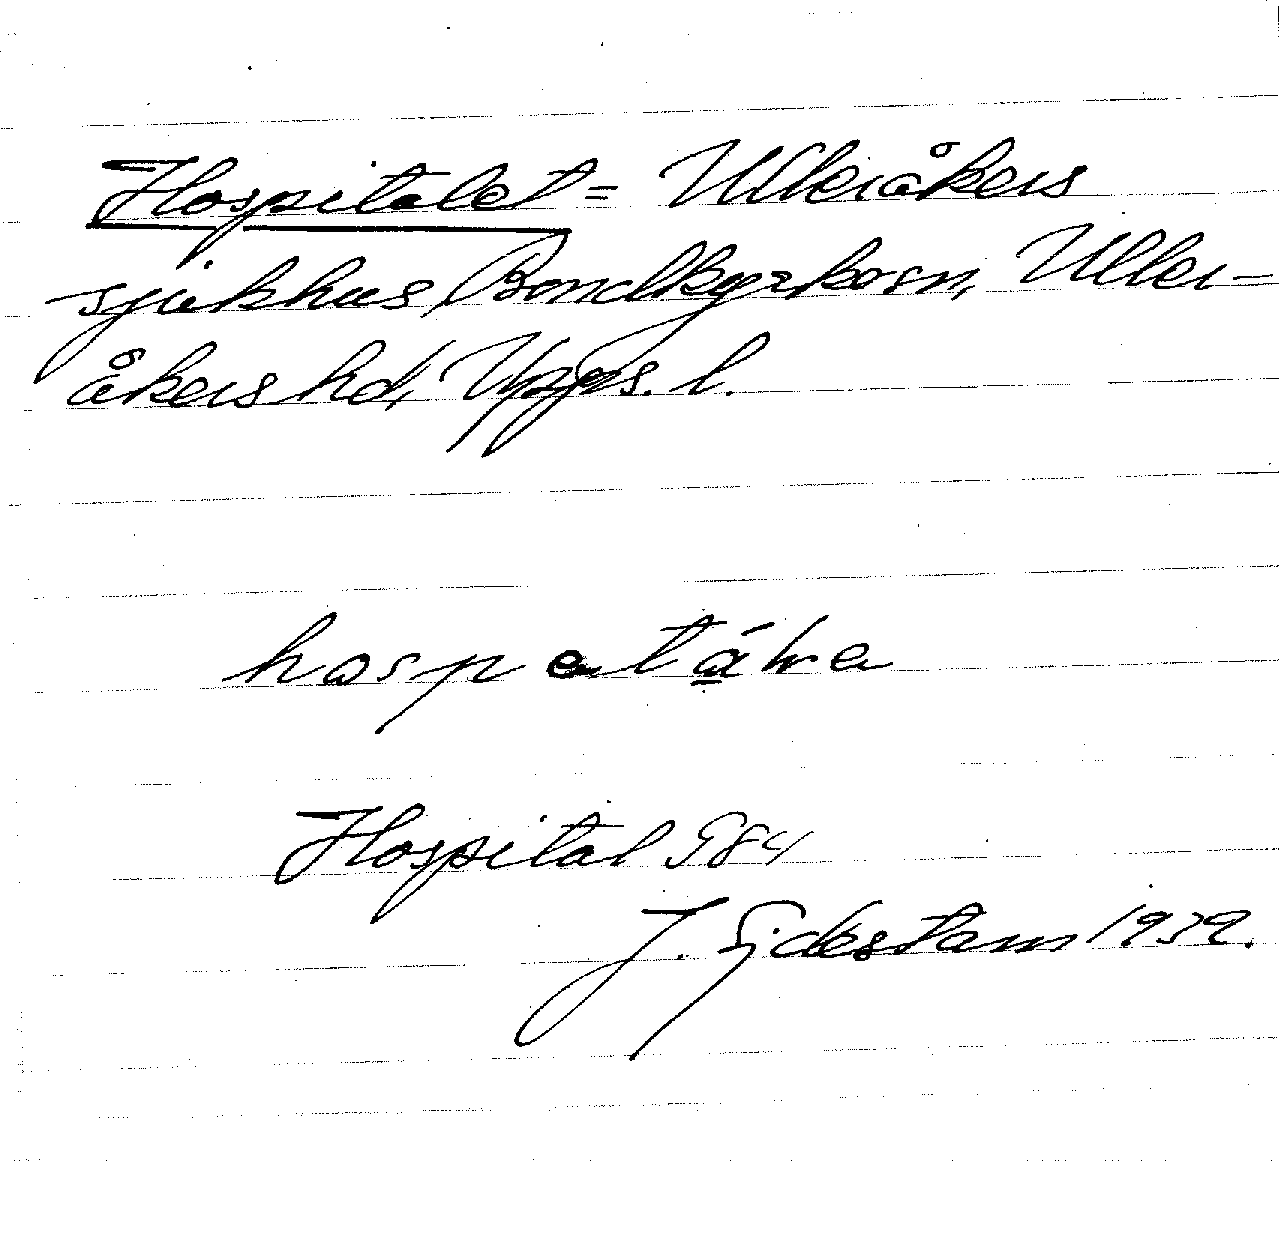 Hospitalet = Ulleråkers
sjukhus, Bondkyrkosn, Uller-
åkers hd, Upps. l.
Hospital S84
J. Sjdestam 1939.